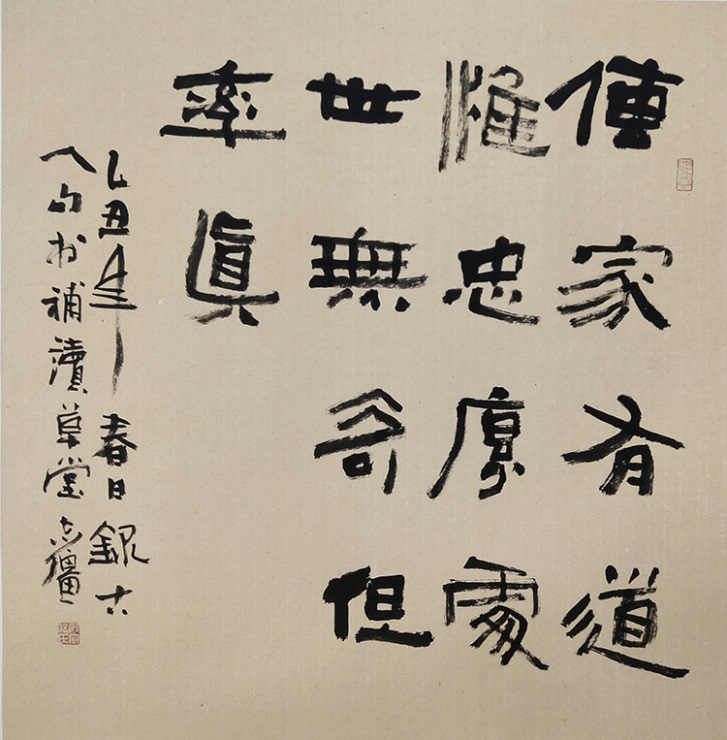 傳家有道
惟忠厚處
世無奇但
率眞
乙丑年春日録古
人句於補讀草堂